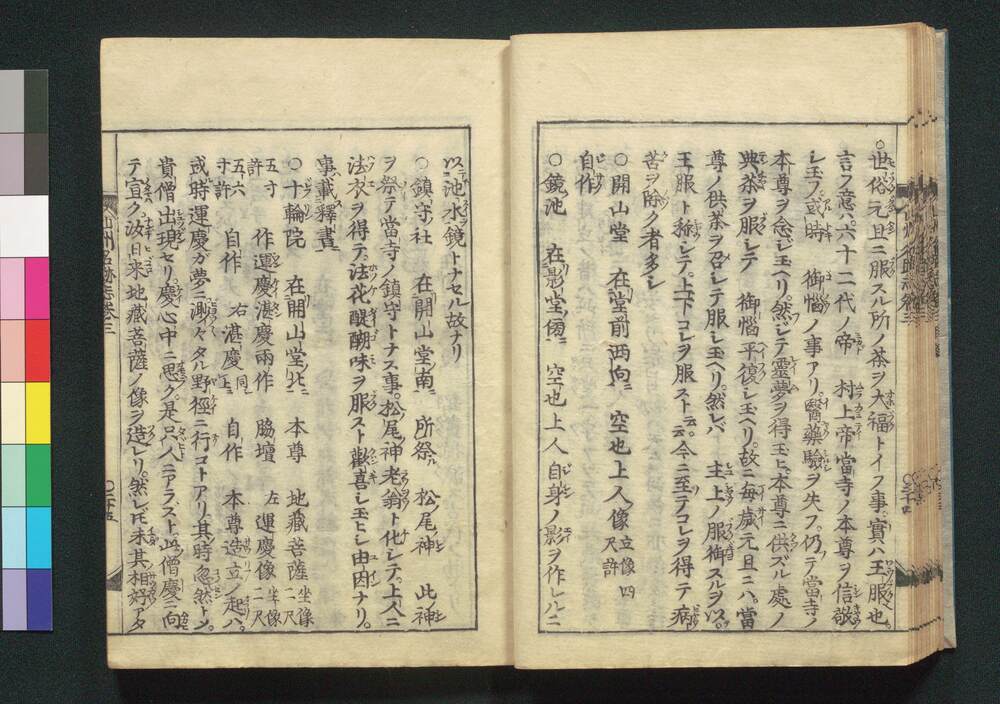 ○世俗元且ニ服スル所ノ茶ヲ大福トイフ事實ハ王服也
言フ意ハ六十二代ノ帝 村上帝當寺ノ本尊ヲ信敬
シ玉フ或時 御惱ノ事アリ醫藥驗ヲ失フ仍テ當寺ノ
本尊ヲ念シ玉ヘリ然シテ靈夢ヲ得玉ヒ本尊ニ供ズル處ノ
典茶ヲ服シテ 御惱平復シ玉ヘリ故ニ毎歳元且ニハ當
尊ノ供茶ヲ召シテ服シ玉ヘリ然レバ 主上ノ服御スルヲ以
王服ト称シテ上下コレヲ服スト云今ニ至テコレヲ得テ病
苦ヲ除ク者多シ
○開山堂 在堂前西向 空也上人像 立像四尺許
自作
○鏡池 在影堂傍 空也上人自身ノ影ヲ作レルニ
以池水鏡トナセル故ナリ
○鎮守社 在開山堂南 所祭 松ノ尾神 此神
ヲ祭テ當寺ノ鎮守トナス事松尾神老翁ト化シテ上人ニ
法衣ヲ得テ法花醍醐味ヲ服スト歡喜シ玉ヒシ由因ナリ
事載釋書
○十輪院 在開山堂北 本尊 地藏菩薩 坐像二尺
五寸許 作運慶湛慶兩作 脇壇 左 運慶像 坐像二尺
五六寸許 自作 右湛慶 同上 自作 本尊造立ノ起ハ
或時運慶ガ夢ニ渺々タル野徑ニ行コトアリ其時忽然トシ
貴僧出現セリ慶心中ニ思ク是只人ニアラスト此僧慶ニ向
テ宣ク汝日来地藏菩薩ノ像ヲ造レリ然レ𪜈未其相好アタ
山州名跡志卷三
○二十五
○二十四